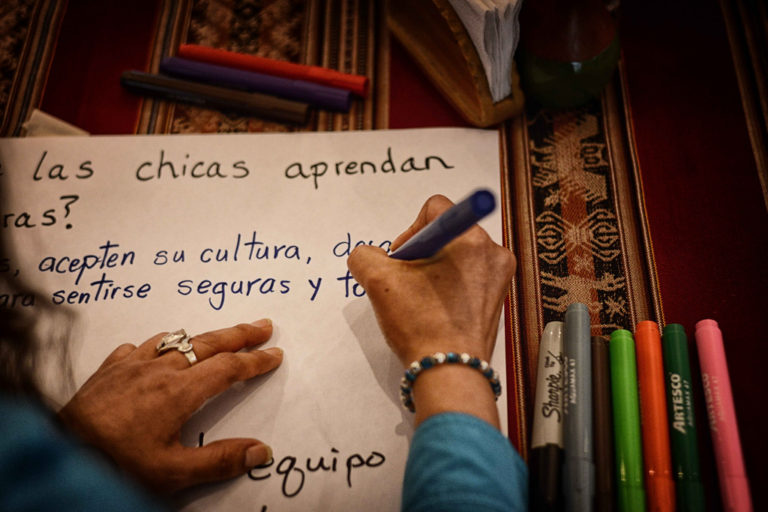 las chicas aprendan
ras?
acepten su cultura,
sentirse seguras y
equipo
Sharpie
ARTESCO